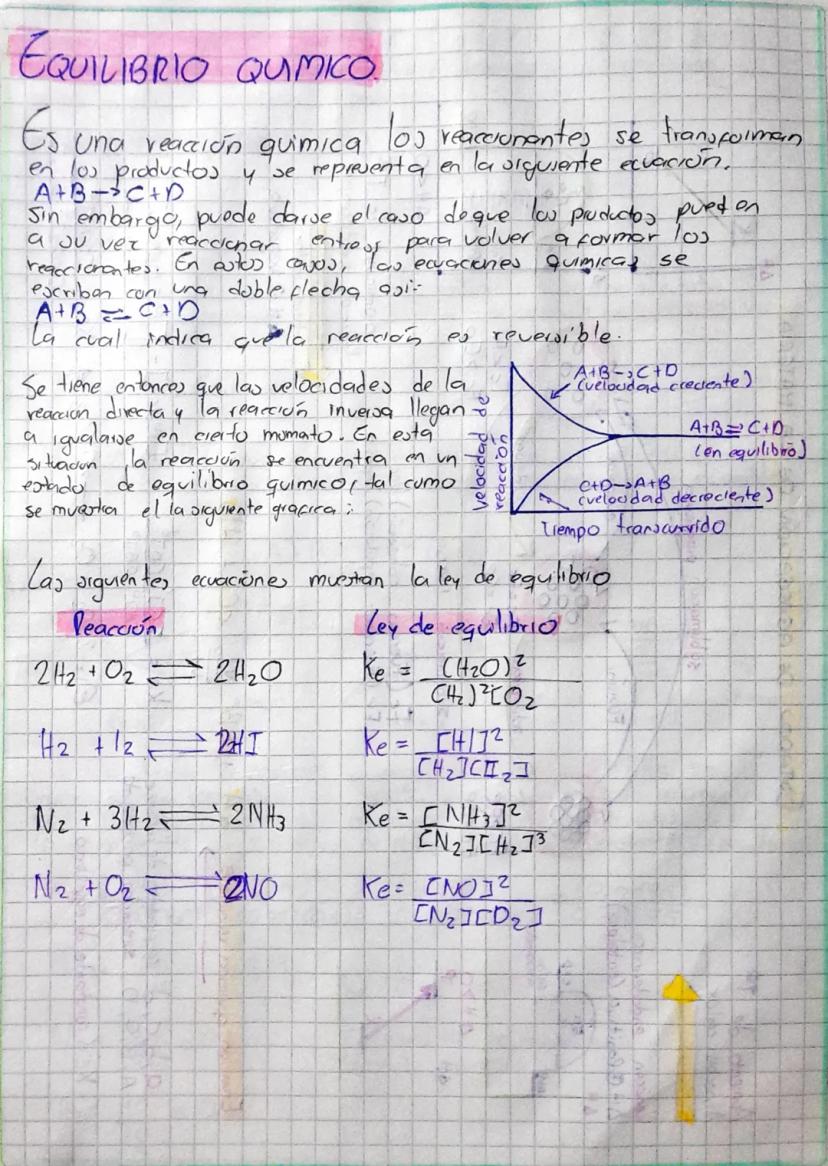 EQUILIBRIO QUMICO.
Es una reacción quimica los reaccionantes se transforman
en los productos y se representa en la siguiente ecuación.
A+B→C+D
Sin embargo, puede darse el caso de que los productos pueden
a su vez reaccionar entre para volver a formar los
reaccionantes. En estos casos, las ecuaciones quimicas se
escriban con una doble flecha asi:
A+B ⇌ C+D
La cual indica que la reacción es reversible.
Se tiene entonces que las velocidades de la
reaccion directa y la reacción inversa llegan
a igualarse en cierto momato. En esta
situacion la reacción se encuentra en un
estado de equilibrio quimico, tal como
se muestra el la siguiente grafica:
velocidad de
reacción
A+B→C+D
(velocidad creciente)
A+B⇌C+D
(en equilibrio)
C+D→A+B
(velocidad decreciente)
Tiempo transcurrido
Las siguientes ecuaciones muestran la ley de equilibrio
Reacción Ley de equilibrio
2H₂ + O₂ ⇌ 2H₂O Ke = (H₂O)²
(H₂)²[O₂
H₂ + I₂ ⇌ 2HI Ke = [HI]²
[H₂][I₂]
N₂ + 3H₂ ⇌ 2NH₃ Ke = [NH₃]²
[N₂][H₂]³
N₂ + O₂ ⇌ 2NO Ke = [NO]²
[N₂][O₂]